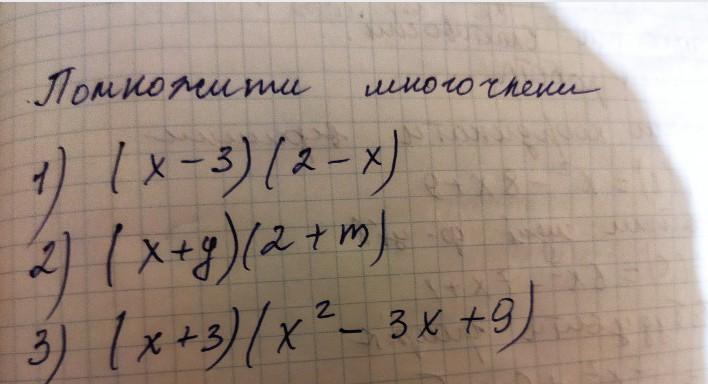 Помножити многочлени
1) (x-3)(2-x)
2) (x+y)(2+m)
3) (x+3)(x²-3x+9)